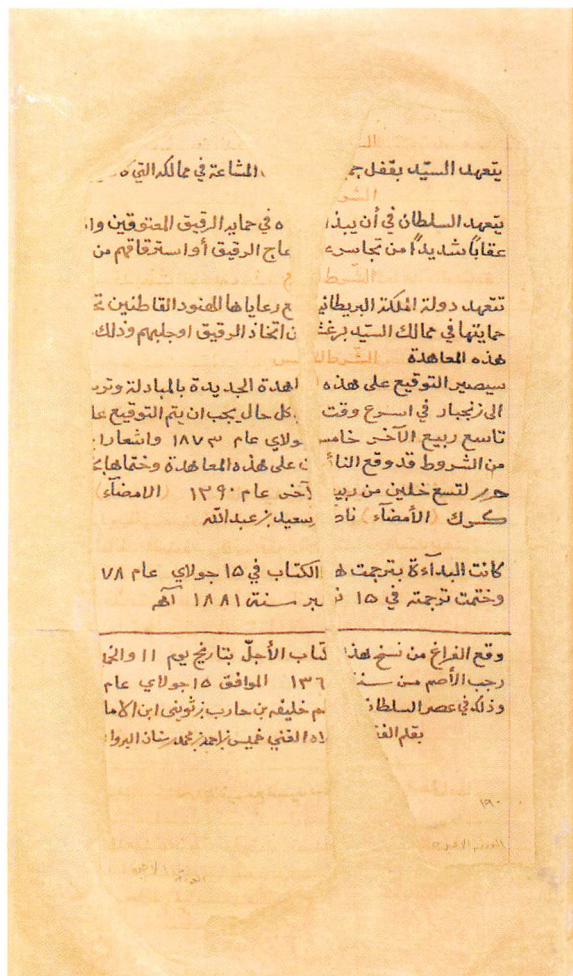 يتعهد السيّد بقفل جم المشاعة في ممالكه التي ه
الشر
يتعهد السلطان في أن يبذا ه في حماية الرقيق المعتوقين وا
عقابًا شديدًا من تجاسر عاج الرقيق أو استرقاقهم من
الشرط
تتعهد دولة الملكة البريطاني ع رعاياها الهنود القاطنين تح
حمايتها في ممالك السيّد برغش ن اتخاذ الرقيق او جلبهم وذلك
هذه المعاهدة الشرط س
سيصير التوقيع على هذه اهدة الجديدة بالمبادلة وتر
الى زنجبار في اسرع وقت كل حال يجب ان يتم التوقيع عا
تاسع ربيع الآخر خامس جولاي عام ١٨٧٣ واشعارا
من الشروط قد وقع النا ن على هذه المعاهدة وختماها
حرر لتسع خلين من ربيع آخر عام ١٣٩٠ (الامضآء)
كرك (الأمضآء) ناد سعيد بن عبدالله
كانت البدآءة بترجمت ه الكتاب في ١٥ جولاي عام ٧٨
وختمت ترجمته في ١٥ بر سنة ١٨٨١ آهـ
وقع الفراغ من نسخ هذا كتاب الأجلّ بتاريخ يوم ١١ والخ
رجب الأصم من سنة ١٣٦ الموافق ١٥ جولاي عام
وذلك في عصر السلطا خليفه بن حارب بن ثويني ابن الاما
بقلم الفق لاه الغني خميس بن احمد بن محمد البروا
١٩٠